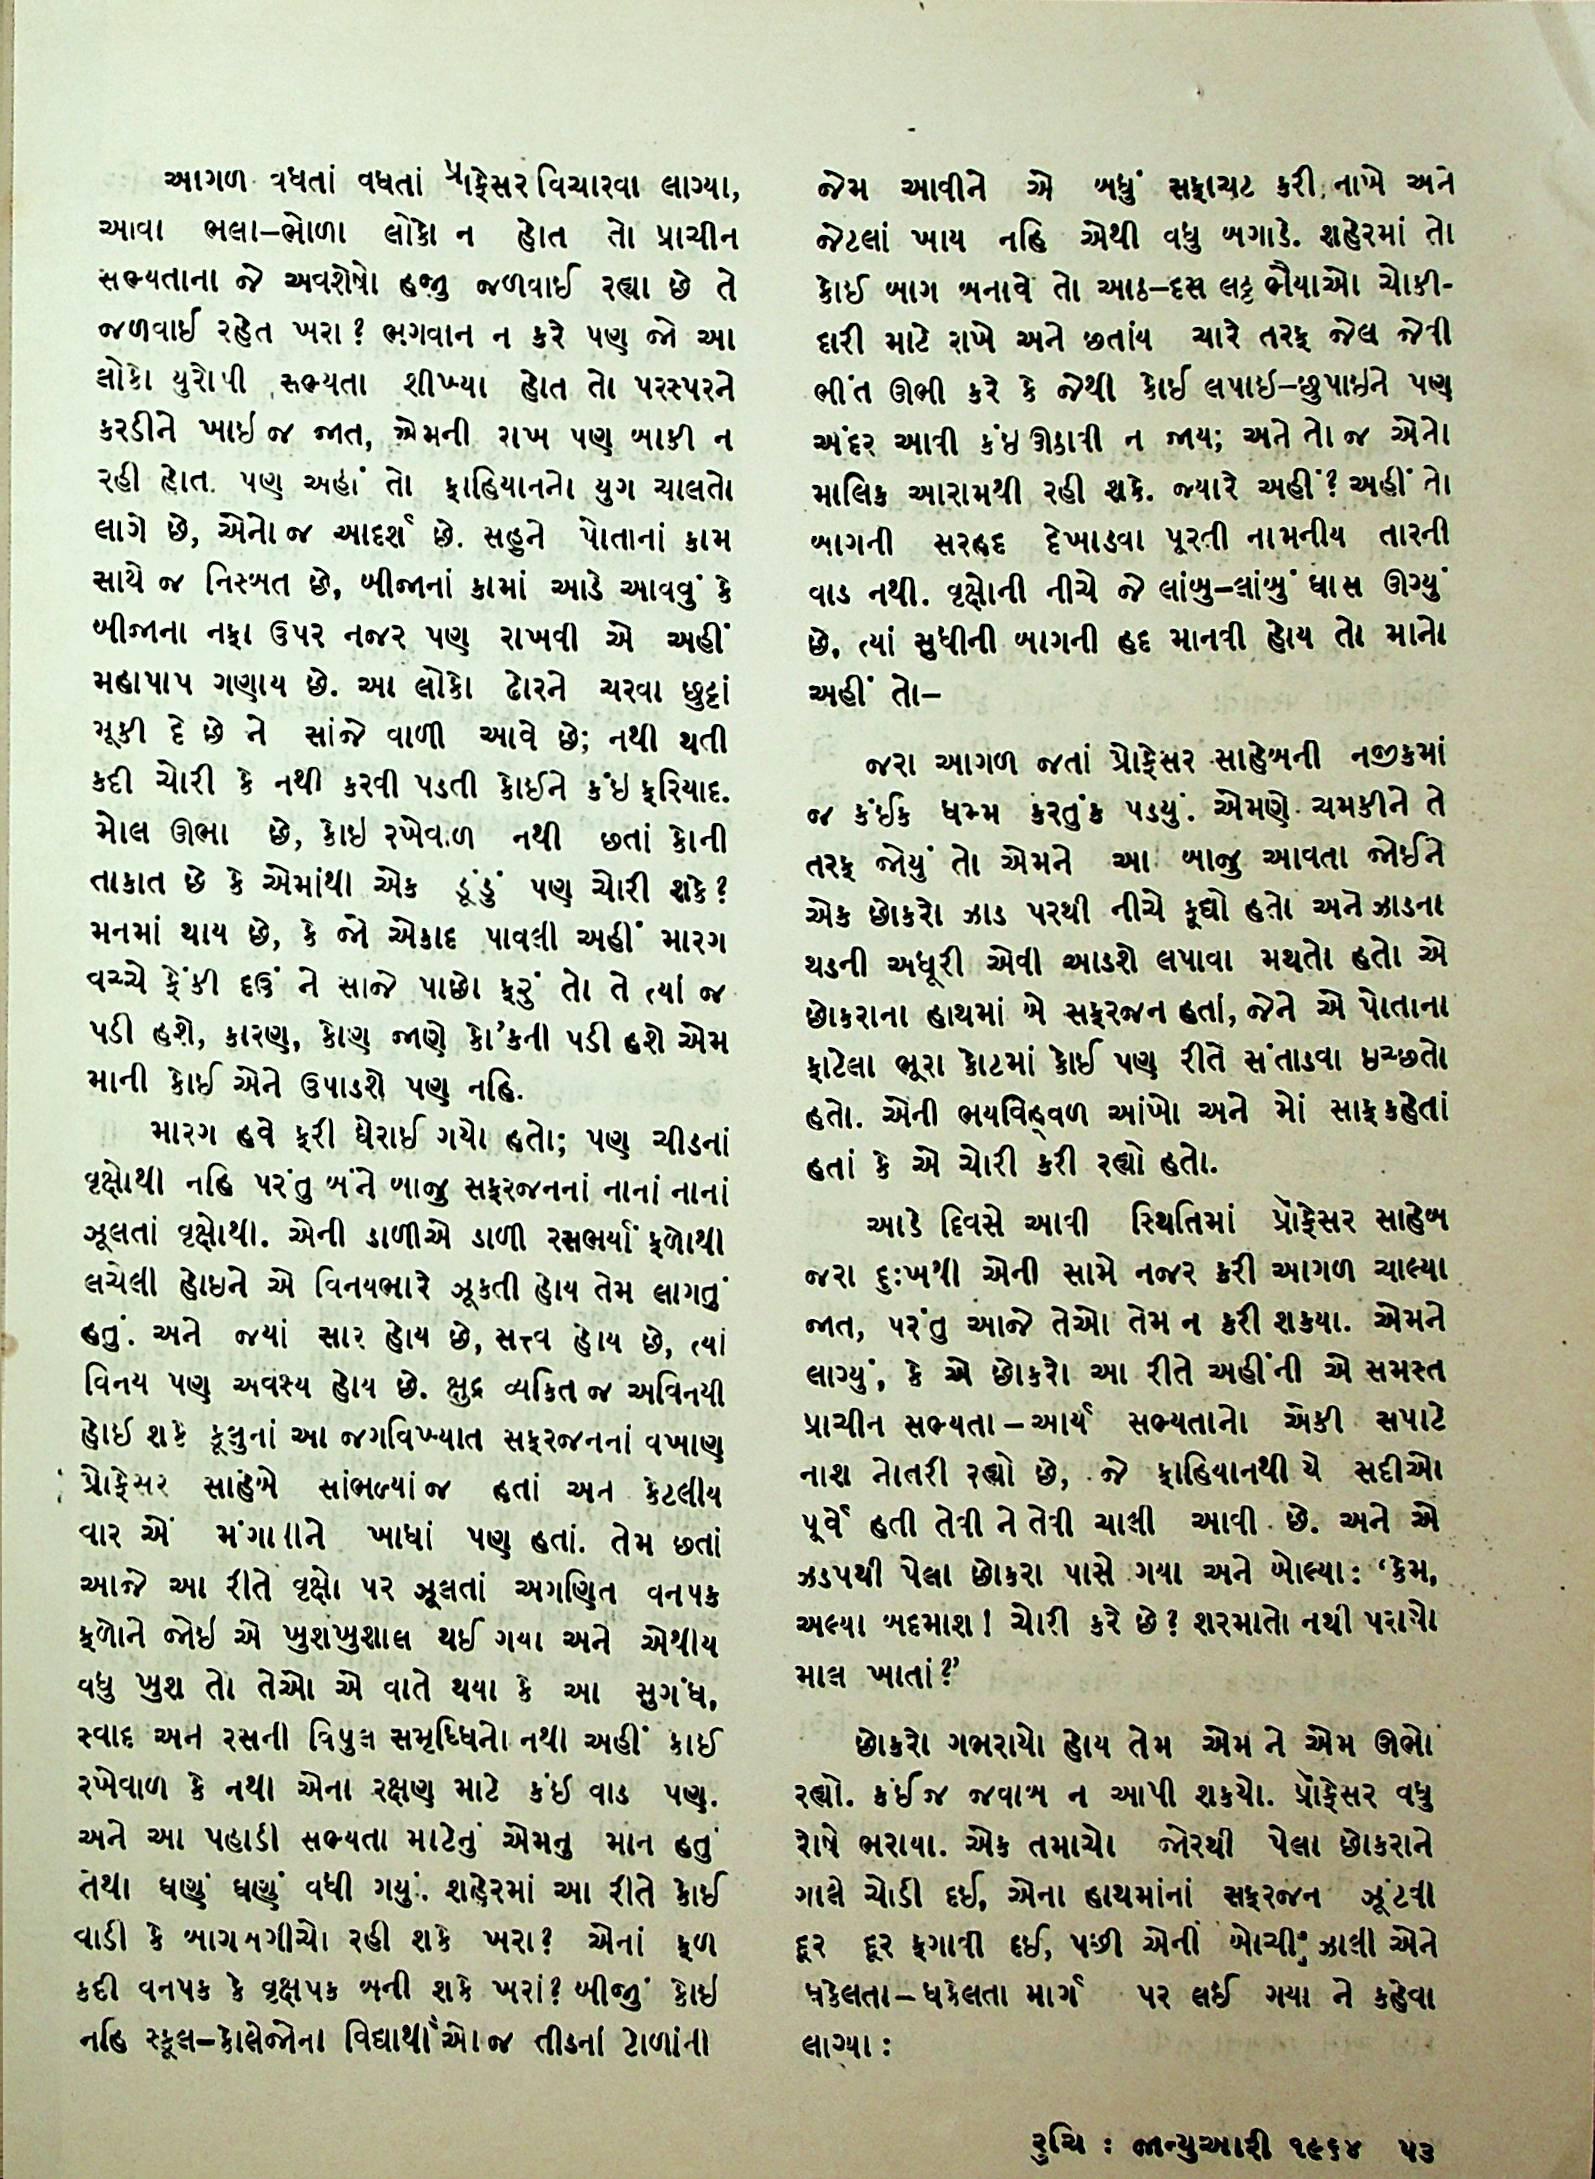 આગળ વધતાં વધતાં પ્રોફેસર વિચારવા લાગ્યા,
આવા ભલા–ભોળા લોકો ન હોત તો પ્રાચીન
સભ્યતાના જે અવશેષો હજી જળવાઈ રહ્યા છે તે
જળવાઈ રહેત ખરા? ભગવાન ન કરે પણ જો આ
લોકો યુરોપી સભ્યતા શીખ્યા હોત તો પરસ્પરને
કરડીને ખાઇ જ જાત, એમની રાખ પણ બાકી ન
રહી હોત. પણ અહીં તો ફાહિયાનનો યુગ ચાલતો
લાગે છે, એનો જ આદર્શ છે. સહુને પોતાનાં કામ
સાથે જ નિસ્બત છે, બીજાનાં કામાં આડે આવવું કે
બીજાના નફા ઉપર નજર પણ રાખવી એ અહીં
મહાપાપ ગણાય છે. આ લોકો ઢોરને ચરવા છુટ્ટાં
મૂકી દે છે ને સાંજે વાળી આવે છે; નથી થતી
કદી ચોરી કે નથી કરવી પડતી કોઈને કંઇ ફરિયાદ.
મોલ ઊભા છે, કોઇ રખેવાળ નથી છતાં કોની
તાકાત છે કે એમાંથી એક ડૂંડું પણ ચોરી શકે?
મનમાં થાય છે, કે જો એકાદ પાવલી અહીં મારગ
વચ્ચે ફેંકી દઉં ને સાંજે પાછો ફરું તો તે ત્યાં જ
પડી હશે, કારણ, કોણ જાણે કો'કની પડી હશે એમ
માની કોઈ એને ઉપાડશે પણ નહિ.
મારગ હવે ફરી ઘેરાઈ ગયો હતો; પણ ચીડનાં
વૃક્ષોથી નહિ પરંતુ બંને બાજુ સફરજનનાં નાનાં નાનાં
ઝૂલતાં વૃક્ષોથી. એની ડાળીએ ડાળી રસભર્યાં ફળોથી
લચેલી હોઇને એ વિનયભારે ઝૂકતી હોય તેમ લાગતું
હતું. અને જ્યાં સાર હોય છે, સત્ત્વ હોય છે, ત્યાં
વિનય પણ અવશ્ય હોય છે. ક્ષુદ્ર વ્યકિત જ અવિનયી
હોઈ શકે કૂલુનાં આ જગવિખ્યાત સફરજનનાં વખાણ
પ્રોફેસર સાહેબે સાંભળ્યાં જ હતાં અને કેટલીય
વાર એ મંગાવીને ખાધાં પણ હતાં. તેમ છતાં
આજે આ રીતે વૃક્ષો પર ઝૂલતાં અગણિત વનપક
ફળોને જોઇ એ ખુશખુશાલ થઈ ગયા અને એથીય
વધુ ખુશ તો તેઓ એ વાતે થયા કે આ સુગંધ,
સ્વાદ અને રસની વિપુલ સમૃધ્ધિનો નથી અહીં કોઈ
રખેવાળ કે નથી એના રક્ષણ માટે કંઈ વાડ પણ.
અને આ પહાડી સભ્યતા માટેનું એમનુ માન હતું
તેથી ઘણું ઘણું વધી ગયું. શહેરમાં આ રીતે કોઈ
વાડી કે બાગબગીચો રહી શકે ખરો? એનાં ફળ
કદી વનપક કે વૃક્ષપક બની શકે ખરાં? બીજું કોઇ
નહિ સ્કૂલ–કોલેજોના વિદ્યાર્થીઓ જ તીડનાં ટોળાંની
જેમ આવીને એ બધું સફાચટ કરી નાખે અને
જેટલાં ખાય નહિ એથી વધુ બગાડે. શહેરમાં તો
કોઈ બાગ બનાવે તો આઠ–દસ લઠ્ઠ ભૈયાઓ ચોકી-
દારી માટે રાખે અને છતાંય ચારે તરફ જેલ જેવી
ભીંત ઊભી કરે કે જેથી કોઈ લપાઇ–છુપાઇને પણ
અંદર આવી કંઇ ઊઠાવી ન જાય; અને તો જ એનો
માલિક આરામથી રહી શકે. જ્યારે અહીં? અહીં તો
બાગની સરહદ દેખાડવા પૂરતી નામનીય તારની
વાડ નથી. વૃક્ષોની નીચે જે લાંબુ–લાંબું ઘાસ ઊગ્યું
છે, ત્યાં સુધીની બાગની હદ માનવી હોય તો માનો
અહીં તો–
જરા આગળ જતાં પ્રોફેસર સાહેબની નજીકમાં
જ કંઈક ધમ્મ કરતુંક પડયું. એમણે ચમકીને તે
તરફ જોયું તો એમને આ બાજુ આવતા જોઈને
એક છોકરો ઝાડ પરથી નીચે કૂદ્યો હતો અને ઝાડના
થડની અધૂરી એવી આડશે લપાવા મથતો હતો એ
છોકરાના હાથમાં બે સફરજન હતાં, જેને એ પોતાના
ફાટેલા ભૂરા કોટમાં કોઈ પણ રીતે સંતાડવા ઇચ્છતો
હતો. એની ભયવિહ્વળ આંખો અને મોં સાફ કહેતાં
હતાં કે એ ચોરી કરી રહ્યો હતો.
આડે દિવસે આવી સ્થિતિમાં પ્રોફેસર સાહેબ
જરા દુઃખથી એની સામે નજર કરી આગળ ચાલ્યા
જાત, પરંતુ આજે તેઓ તેમ ન કરી શકયા. એમને
લાગ્યું, કે એ છોકરો આ રીતે અહીંની એ સમસ્ત
પ્રાચીન સભ્યતા – આર્ય સભ્યતાનો એકી સપાટે
નાશ નોતરી રહ્યો છે, જે ફાહિયાનથી યે સદીઓ
પૂર્વે હતી તેવી ને તેવી ચાલી આવી છે. અને એ
ઝડપથી પેલા છોકરા પાસે ગયા અને બોલ્યા: ‘કેમ,
અલ્યા બદમાશ! ચોરી કરે છે? શરમાતો નથી પરાયો
માલ ખાતાં?’
છોકરો ગભરાયો હોય તેમ એમ ને એમ ઊભો
રહ્યો. કંઈજ જવાબ ન આપી શકયો. પ્રોફેસર વધુ
રોષે ભરાયા. એક તમાચો જોરથી પેલા છોકરાને
ગાલે ચોડી દઈ, એના હાથમાંનાં સફરજન ઝૂંટવી
દૂર દૂર ફગાવી દઈ, પછી એની બોચી ઝાલી એને
ધકેલતા – ધકેલતા માર્ગ પર લઈ ગયા ને કહેવા
લાગ્યા:
રુચિ : જાન્યુઆરી ૧૯૬૪ ૫૩